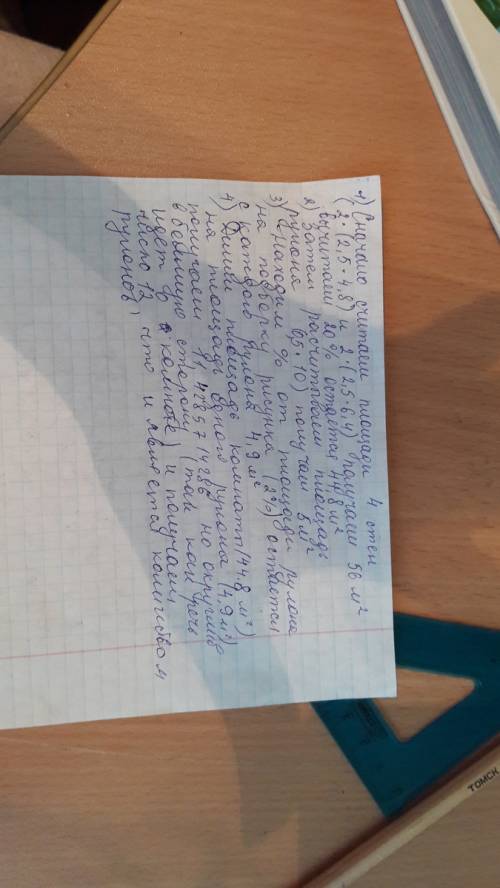 1) Сначало считаем площади 4 стен
(2·(2,5·4,8) и 2·(2,5·6,4) получаем 56 м²
вычитаем 20% остаётся 44,8 м²
2) Затем расчитываем площадь
рулона (0,5·10) получаем 5 м²
3) Находим % от площади рулона
на подгонку рисунка (2%) остается
с каждого рулона 4,9 м²
4) Делим площадь комнаты (44,8 м²)
на площадь одного рулона (4,9 м²)
получаем 4285714286 но округляю
в большую сторону (так как речь
идет о комнате) и получаем,
число 12, что и является количеством
рулонов
ТОМСК